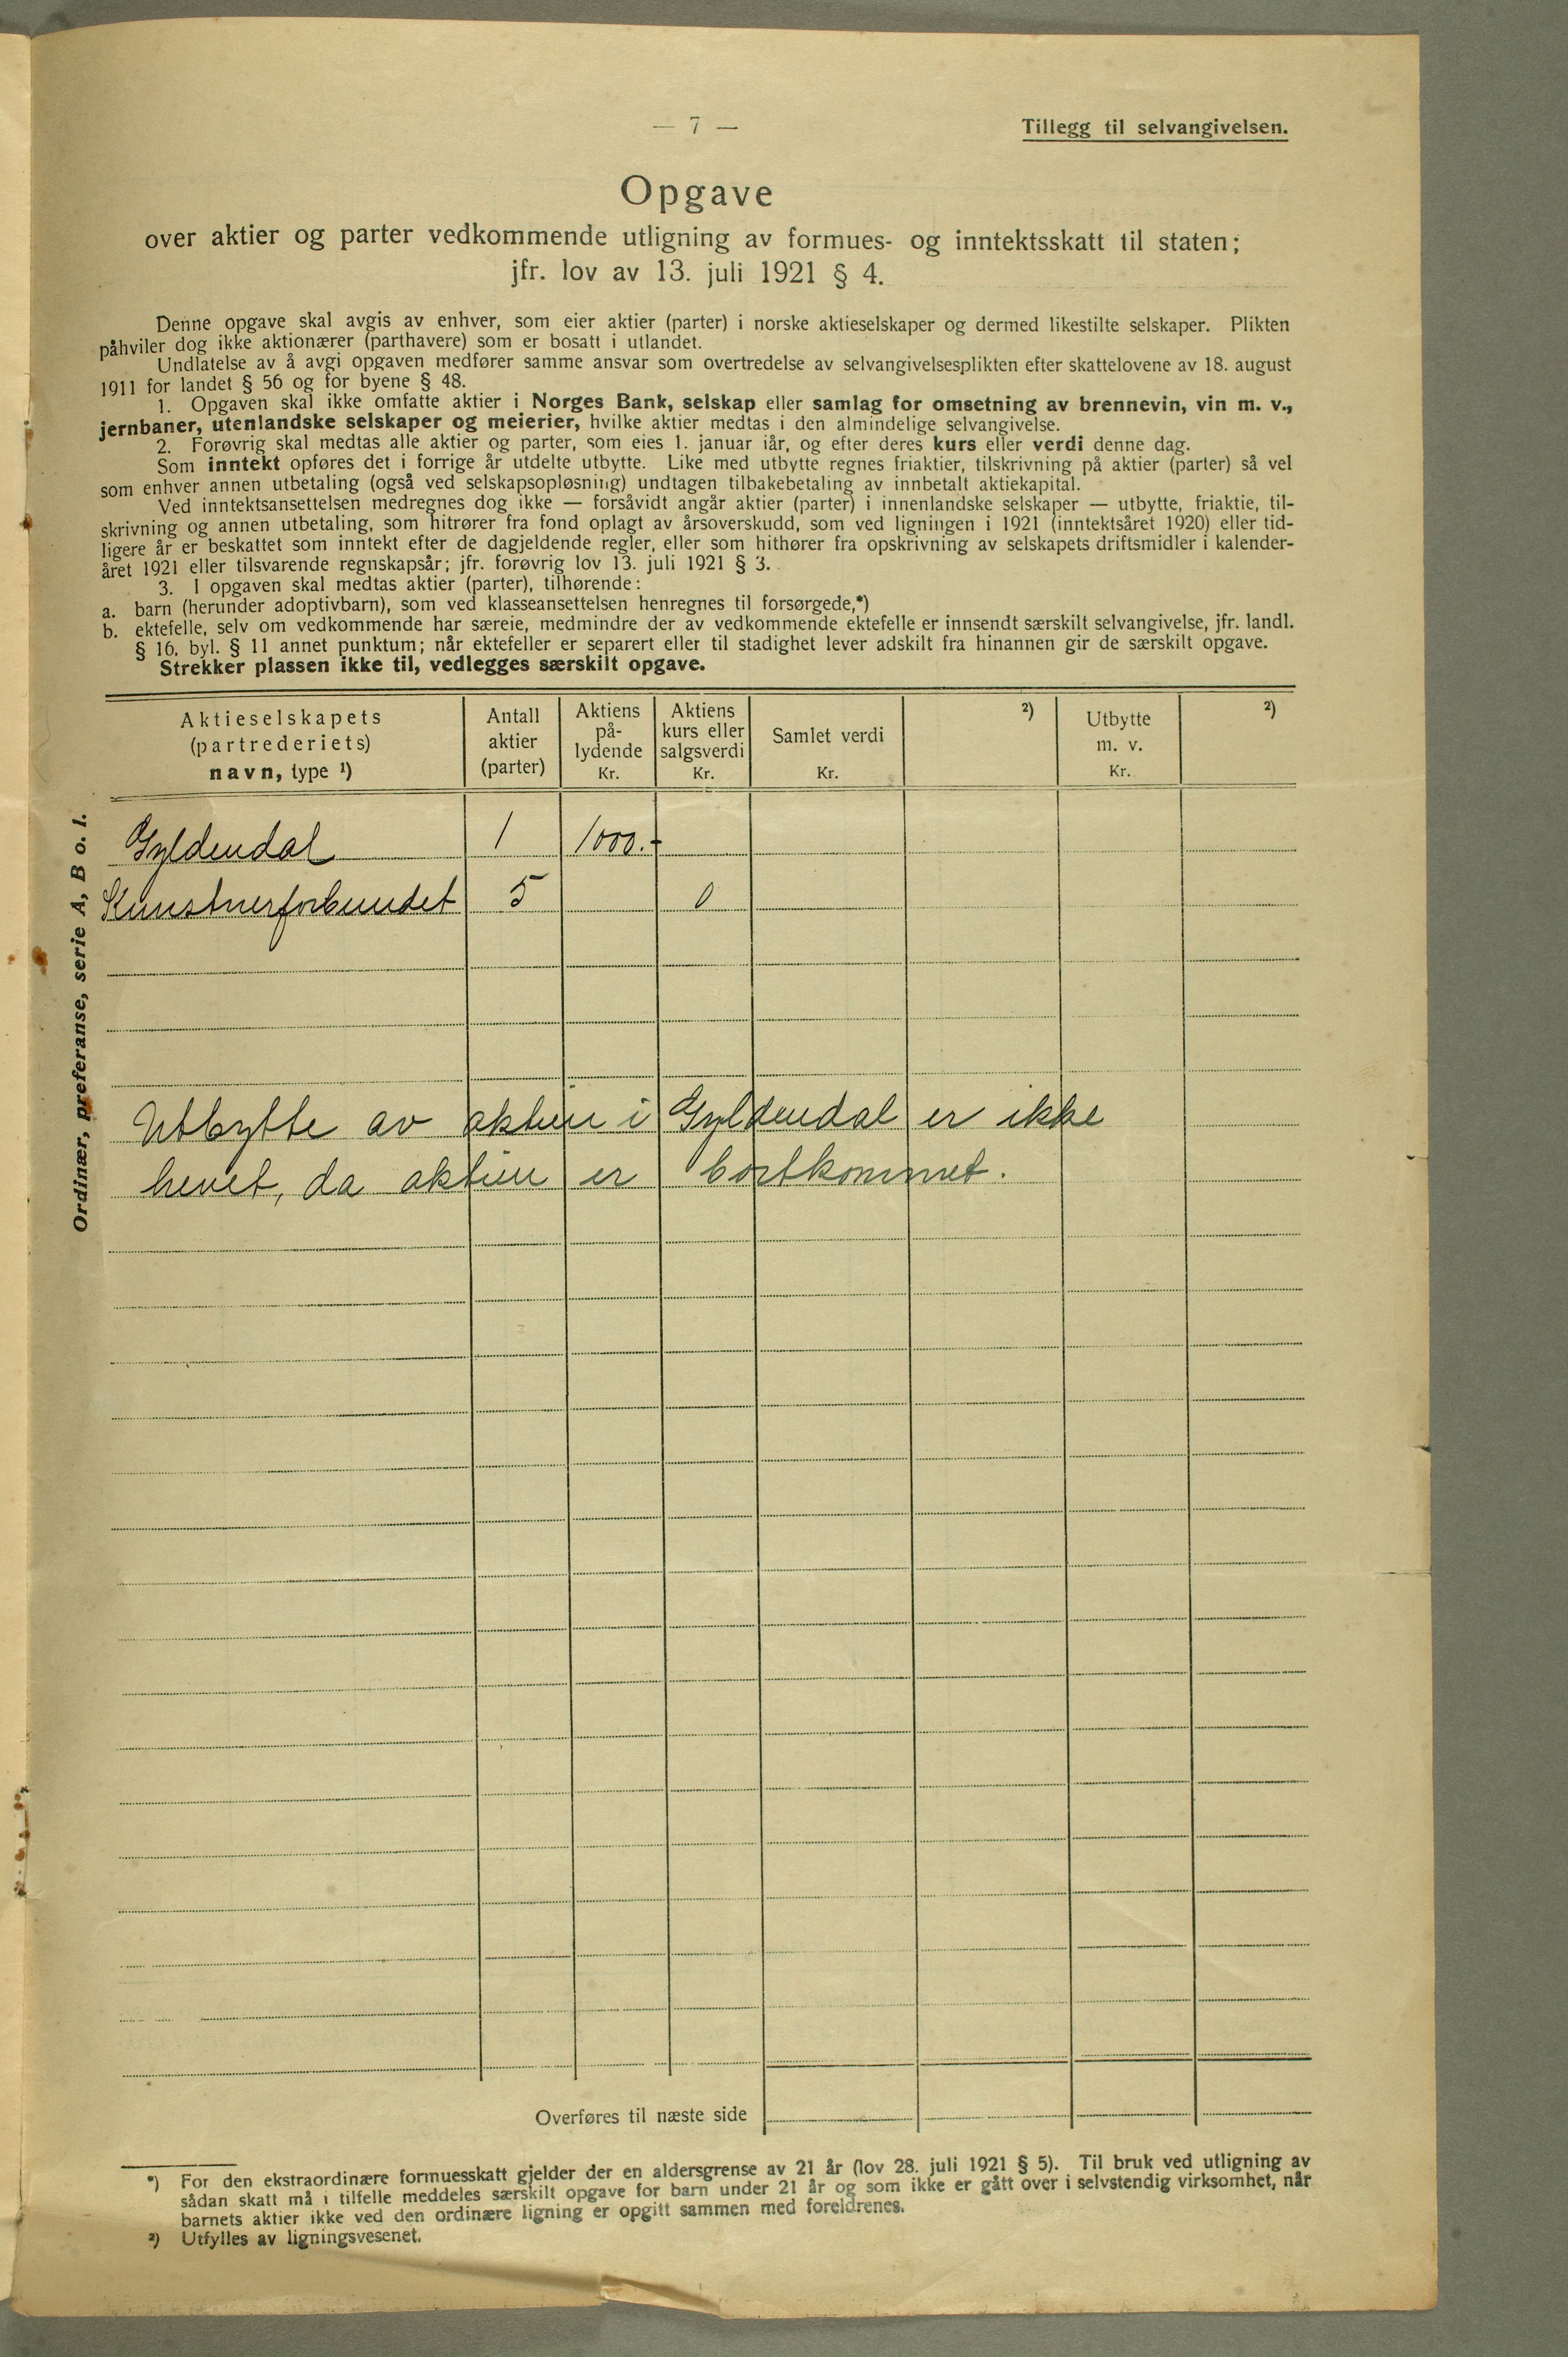 — 7 —
Tillegg til selvangivelsen.
Opgave
over aktier og parter vedkommende utligning av formues- og inntektsskatt til staten;
jfr. lov av 13. juli 1921 § 4.
Denne opgave skal avgis av enhver, som eier aktier (parter) i norske aktieselskaper og dermed likestilte selskaper. Plikten
påhviler dog ikke aktionærer (parthavere) som er bosatt i utlandet.
Undlatelse av å avgi opgaven medfører samme ansvar som overtredelse av selvangivelsesplikten efter skattelovene av 18. august
1911 for landet § 56 og for byene § 48.
1. Opgaven skal ikke omfatte aktier i Norges Bank, selskap eller samlag for omsetning av brennevin, vin m. v.,
jernbaner, utenlandske selskaper og meierier, hvilke aktier medtas i den almindelige selvangivelse.
2. Forøvrig skal medtas alle aktier og parter, som eies 1. januar iår, og efter deres kurs eller verdi denne dag.
Som inntekt opføres det i forrige år utdelte utbytte. Like med utbytte regnes friaktier, tilskrivning på aktier (parter) så vel
som enhver annen utbetaling (også ved selskapsopløsning) undtagen tilbakebetaling av innbetalt aktiekapital.
Ved inntektsansettelsen medregnes dog ikke — forsåvidt angår aktier (parter) i innenlandske selskaper — utbytte, friaktie, til-
skrivning og annen utbetaling, som hitrører fra fond oplagt av årsoverskudd, som ved ligningen i 1921 (inntektsåret 1920) eller tid-
ligere år er beskattet som inntekt efter de dagjeldende regler, eller som hithører fra opskrivning av selskapets driftsmidler i kalender-
året 1921 eller tilsvarende regnskapsår; jfr. forøvrig lov 13. juli 1921 § 3.
3. I opgaven skal medtas aktier (parter), tilhørende:
a. barn (herunder adoptivbarn), som ved klasseansettelsen henregnes til forsørgede,*)
b. ektefelle, selv om vedkommende har særeie, medmindre der av vedkommende ektefelle er innsendt særskilt selvangivelse, jfr. landl.
§ 16, byl. § 11 annet punktum; når ektefeller er separert eller til stadighet lever adskilt fra hinannen gir de særskilt opgave.
Strekker plassen ikke til, vedlegges særskilt opgave.
Aktieselskapets
(partrederiets)
navn, type ¹)
Antall
aktier
(parter)
Aktiens
på-
lydende
Kr.
Aktiens
kurs eller
salgsverdi
Kr.
Samlet verdi
Kr.
²)
Utbytte
m. v.
Kr.
²)
Ordinær, preferanse, serie A, B o. l.
Gyldendal 1 1000.-
Kunstnerforbundet 5 0
Utbytte av aktien i Gyldendal er ikke
hevet, da aktien er bortkommet.
Overføres til næste side
*) For den ekstraordinære formuesskatt gjelder der en aldersgrense av 21 år (lov 28. juli 1921 § 5). Til bruk ved utligning av
sådan skatt må i tilfelle meddeles særskilt opgave for barn under 21 år og som ikke er gått over i selvstendig virksomhet, når
barnets aktier ikke ved den ordinære ligning er opgitt sammen med foreldrenes.
²) Utfylles av ligningsvesenet.